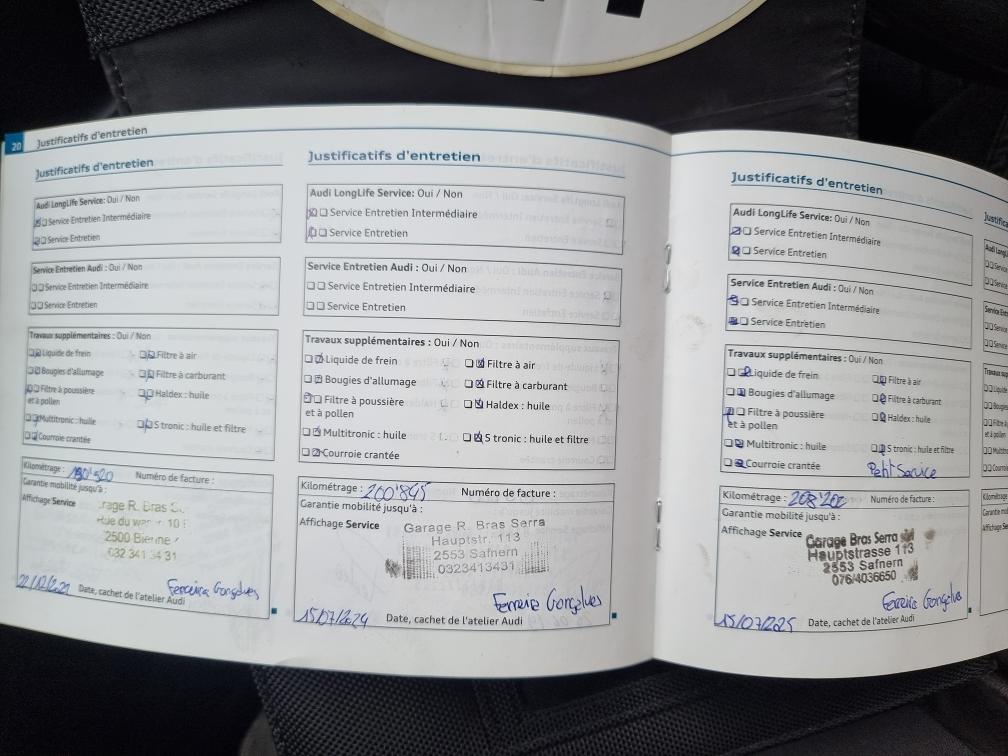 20 Justificatifs d'entretien
Justificatifs d'entretien
Audi LongLife Service: Oui / Non
Service Entretien Intermédiaire
Service Entretien
Service Entretien Audi : Oui / Non
Service Entretien Intermédiaire
Service Entretien
Travaux supplémentaires : Oui / Non
Liquide de frein Filtre à air
Bougies d'allumage Filtre à carburant
Filtre à poussière Haldex : huile
et à pollen
Multitronic : huile S tronic : huile et filtre
Courroie crantée
Kilométrage : Numéro de facture :
Garantie mobilité jusqu'à :
Affichage Service
R. Bras
2500 Bienne
032 341 34 31
Date, cachet de l'atelier Audi
Ferreira Gonçalves
Justificatifs d'entretien
Audi LongLife Service: Oui / Non
Service Entretien Intermédiaire
Service Entretien
Service Entretien Audi : Oui / Non
Service Entretien Intermédiaire
Service Entretien
Travaux supplémentaires : Oui / Non
Liquide de frein Filtre à air
Bougies d'allumage Filtre à carburant
Filtre à poussière Haldex : huile
et à pollen
Multitronic : huile S tronic : huile et filtre
Courroie crantée
Kilométrage : 200'845 Numéro de facture :
Garantie mobilité jusqu'à :
Affichage Service
Garage R. Bras Serra
Hauptstr. 113
2553 Safnern
0323413431
Ferreira Gonçalves
15/07/2024 Date, cachet de l'atelier Audi
Justificatifs d'entretien
Audi LongLife Service: Oui / Non
Service Entretien Intermédiaire
Service Entretien
Service Entretien Audi : Oui / Non
Service Entretien Intermédiaire
Service Entretien
Travaux supplémentaires : Oui / Non
Liquide de frein Filtre à air
Bougies d'allumage Filtre à carburant
Filtre à poussière Haldex : huile
et à pollen
Multitronic : huile S tronic : huile et filtre
Courroie crantée Petit Service
Kilométrage : 208'200 Numéro de facture :
Garantie mobilité jusqu'à :
Affichage Service
Garage Bras Serra
Hauptstrasse 113
2553 Safnern
076/4036650
Ferreira Gonçalves
15/07/2025 Date, cachet de l'atelier Audi